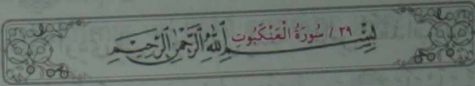 ٢٩ / سُورَةُ الْعَنْكَبُوتِ
بِسْمِ اللَّهِ الرَّحْمَٰنِ الرَّحِيمِ